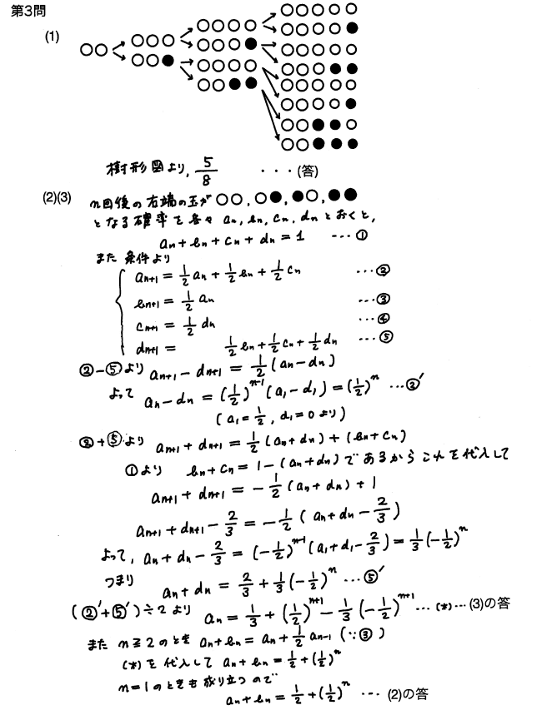 第3問
(1)
樹形図より, 5/8 ・・・(答)
(2)(3)
n回後の右端の玉が○○, ○●, ●○, ●●
となる確率を各々 an, bn, cn, dn とおくと,
an + bn + cn + dn = 1 ・・・①
また条件より
an+1 = 1/2 an + 1/2 bn + 1/2 cn ・・・②
bn+1 = 1/2 an ・・・③
cn+1 = 1/2 dn ・・・④
dn+1 = 1/2 bn + 1/2 cn + 1/2 dn ・・・⑤
②-⑤より an+1 - dn+1 = 1/2 (an - dn)
よって an - dn = (1/2)^(n-1) (a1 - d1) = (1/2)^n ・・・②'
(a1 = 1/2, d1 = 0 より)
②+⑤より an+1 + dn+1 = 1/2 (an + dn) + (bn + cn)
①より bn + cn = 1 - (an + dn) であるからこれを代入して
an+1 + dn+1 = -1/2 (an + dn) + 1
an+1 + dn+1 - 2/3 = -1/2 (an + dn - 2/3)
よって, an + dn - 2/3 = (-1/2)^(n-1) (a1 + d1 - 2/3) = 1/3 (-1/2)^n
つまり an + dn = 2/3 + 1/3 (-1/2)^n ・・・⑤'
(②'+⑤')÷2より an = 1/3 + (1/2)^(n+1) - 1/3 (-1/2)^(n+1) ・・・(*)・・・(3)の答
また n≧2のとき an + bn = an + 1/2 an-1 (∵③)
(*)を代入して an + bn = 1/2 + (1/2)^n
n=1のときも成り立つので
an + bn = 1/2 + (1/2)^n ・・・(2)の答